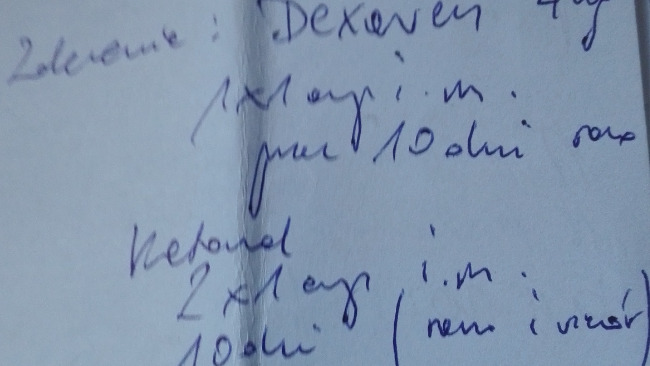 Zlecenie: Dexaven 4mg
1x1 amp i.m.
przez 10 dni rano
Ketonal
2x1 amp i.m.
10 dni (rano i wieczór)